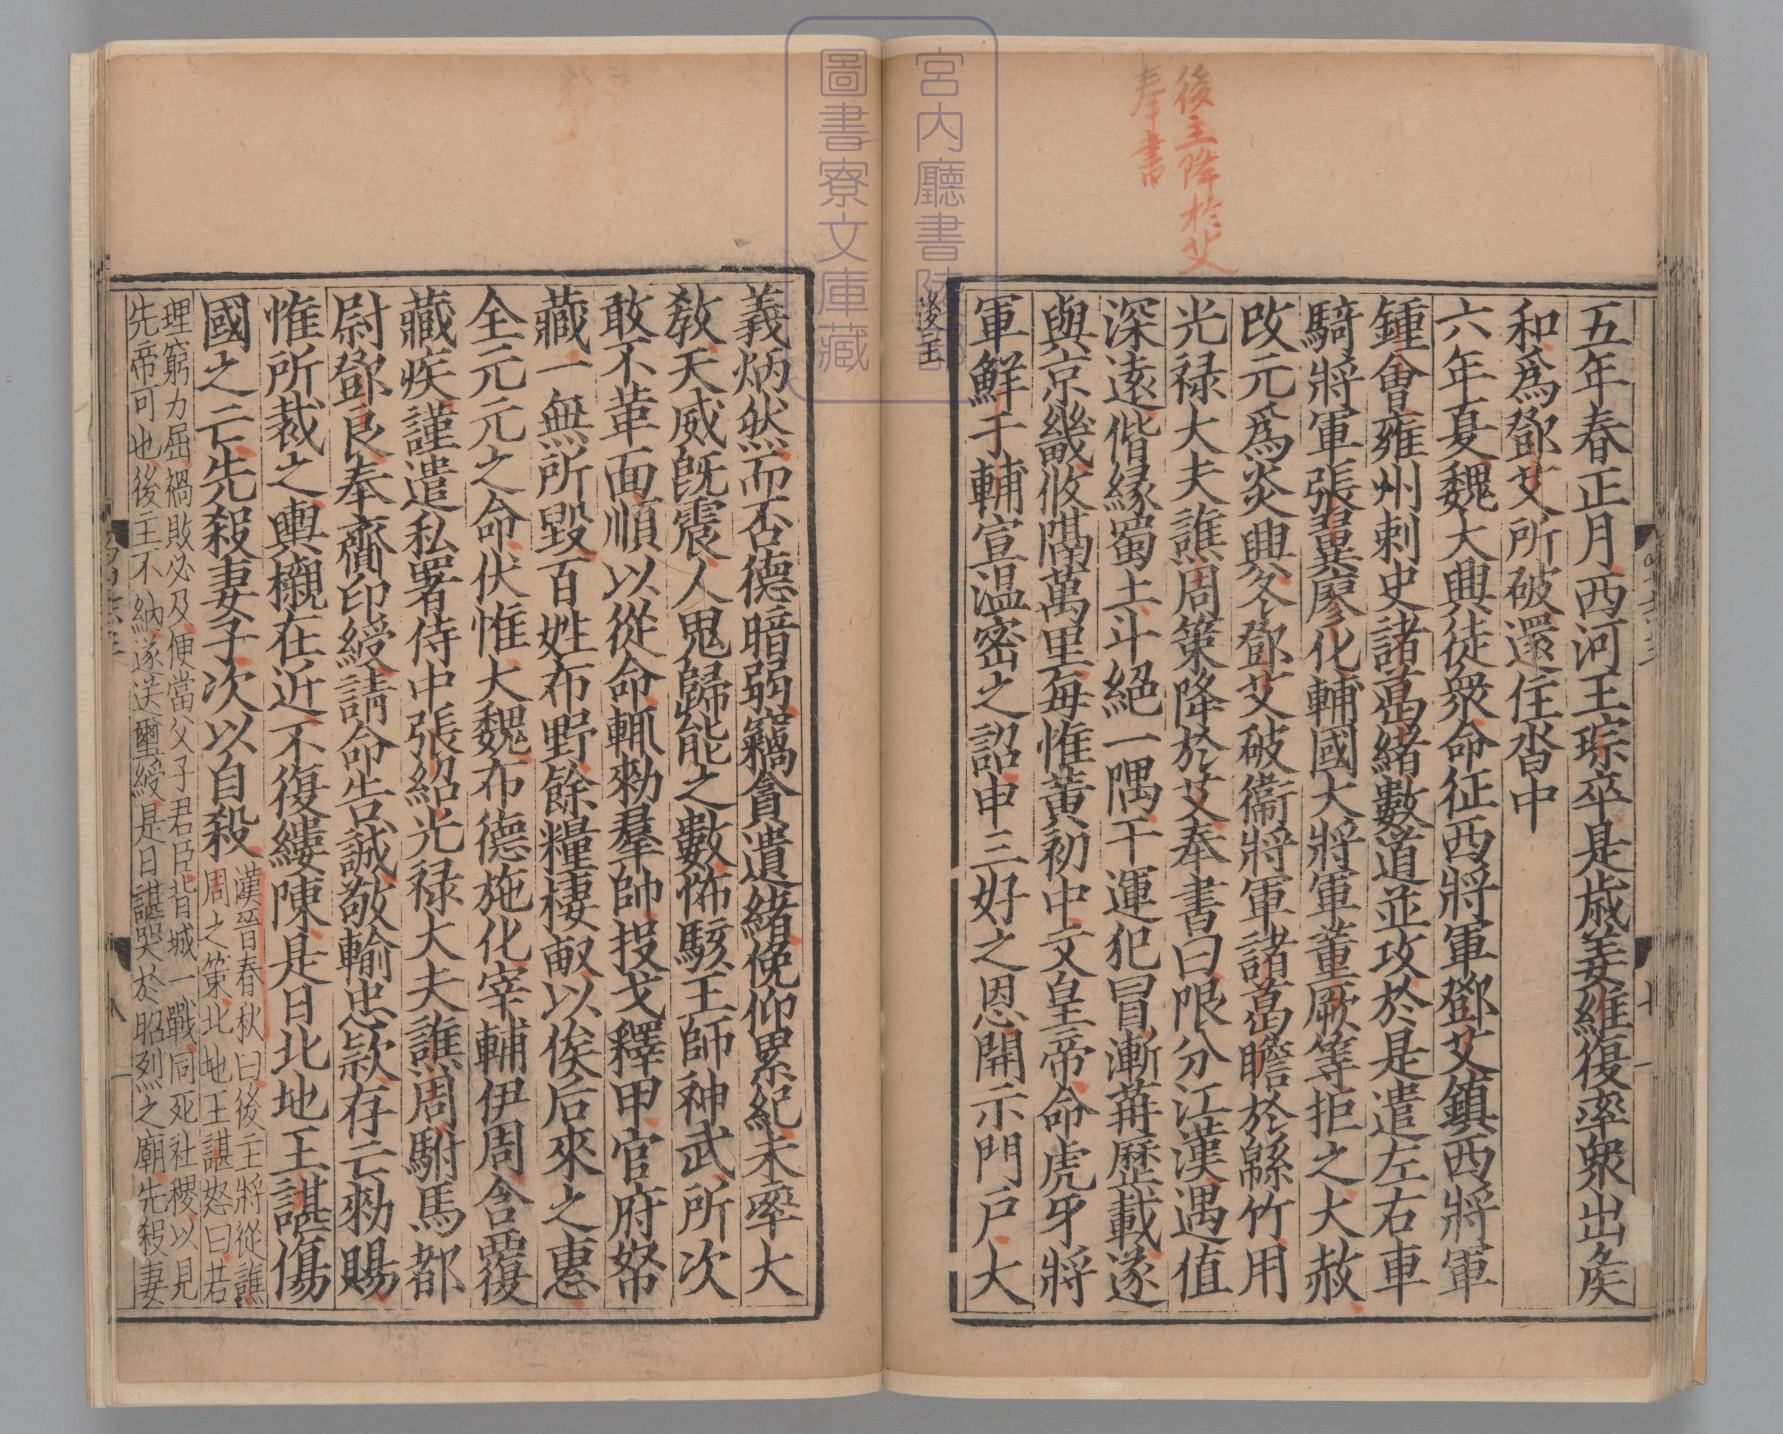 後主降於艾
奉書
五年春正月西河王琮卒是歲姜維復率衆出侯
和爲鄧艾所破還住沓中
六年夏魏大興徒衆命征西將軍鄧艾鎮西將軍
鍾會雍州刺史諸葛緒數道並攻於是遣左右車
騎將軍張翼廖化輔國大將軍董厥等拒之大赦
改元爲炎興冬鄧艾破衞將軍諸葛瞻於緜竹用
光祿大夫譙周策降於艾奉書曰限分江漢遇值
深遠偕緣蜀土斗絕一隅干運犯冒漸苒歷載遂
與京畿攸隔萬里每惟黃初中文皇帝命虎牙將
軍鮮于輔宣溫密之詔申三好之恩開示門戶大
後主
義炳然而否德暗弱竊貪遺緒俛仰累紀未率大
敎天威旣震人鬼歸能之數怖駭王師神武所次
敢不革面順以從命輒勑羣帥投戈釋甲官府帑
藏一無所毀百姓布野餘糧棲畝以俟后來之惠
全元元之命伏惟大魏布德施化宰輔伊周含覆
藏疾謹遣私署侍中張紹光祿大夫譙周駙馬都
尉鄧良奉齎印綬請命告誠敬輸忠款存亡勑賜
惟所裁之輿櫬在近不復縷陳是日北地王諶傷
國之亡先殺妻子次以自殺
漢晉春秋曰後主將從譙
周之策北地王諶怒曰若
理窮力屈禍敗必及便當父子君臣背城一戰同死社稷以見
先帝可也後主不納遂送璽綬是日諶哭於昭烈之廟先殺妻
八
宮内廳書陵部
圖書寮文庫藏